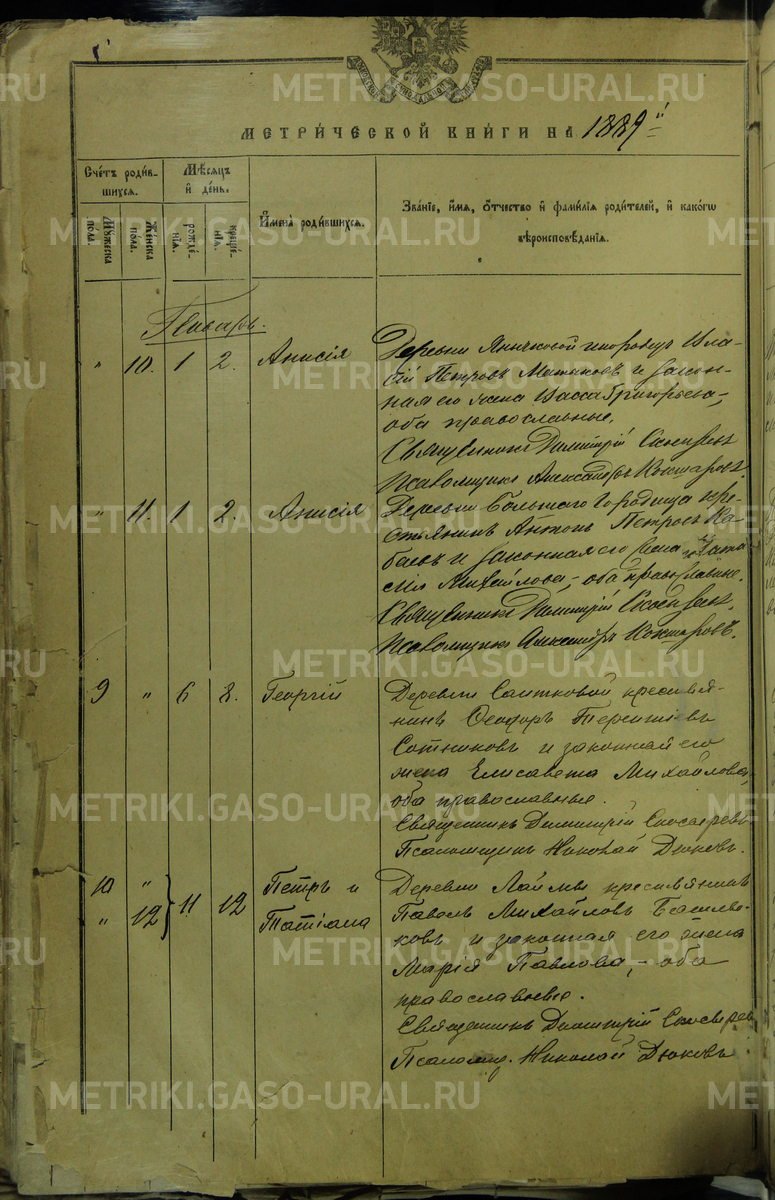 МЕТРИ́ЧЕСКОЙ КНИ́ГИ НА 1889
Сче́тъ роди́в-
шихся.
Му́жеска
по́ла.
Же́нска
по́ла.
Мѣ́сяцъ
и̂ де́нь.
рожде́-
нїѧ.
креще́-
нїѧ.
И̂мена̀ роди́вшихся.
Зва́нїе, и́мя, о́тчество и̂ фами́лїя роди́телей, и̂ како́гѡ
вѣроисповѣ́данїя.
Январь.
" 10. 1 2. Анисія
Деревни инородецъ
Петровъ и закон-
ная его жена Васса Григорьева,
оба православные.
Священникъ Димитрій
Псаломщикъ Александръ Кокшаровъ.
" 11. 1 2. Анисія
Деревни Большаго Городища кре-
стьянинъ Антонъ Петровъ Ка-
баевъ и законная его жена
Михайлова, оба православные.
Священникъ Димитрій
Псаломщикъ Александръ Кокшаровъ.
9 " 6 8. Георгій
Деревни Саитковой крестья-
нинъ Ѳеодоръ Терентіевъ
Сотниковъ и законная его
жена Елисавета Михайлова,
оба православные.
Священникъ Димитрій Скосыревъ
Псаломщикъ Николай Дюковъ.
10 " 11 12 Петръ и
" 12 Татіана
Деревни Лаймы крестьянинъ
Павелъ Михайловъ
и законная его жена
Марія Павлова, - оба
православные.
Священникъ Димитрій Скосырев
Псаломщ. Николай Дюковъ
METRIKI.GASO-URAL.RU